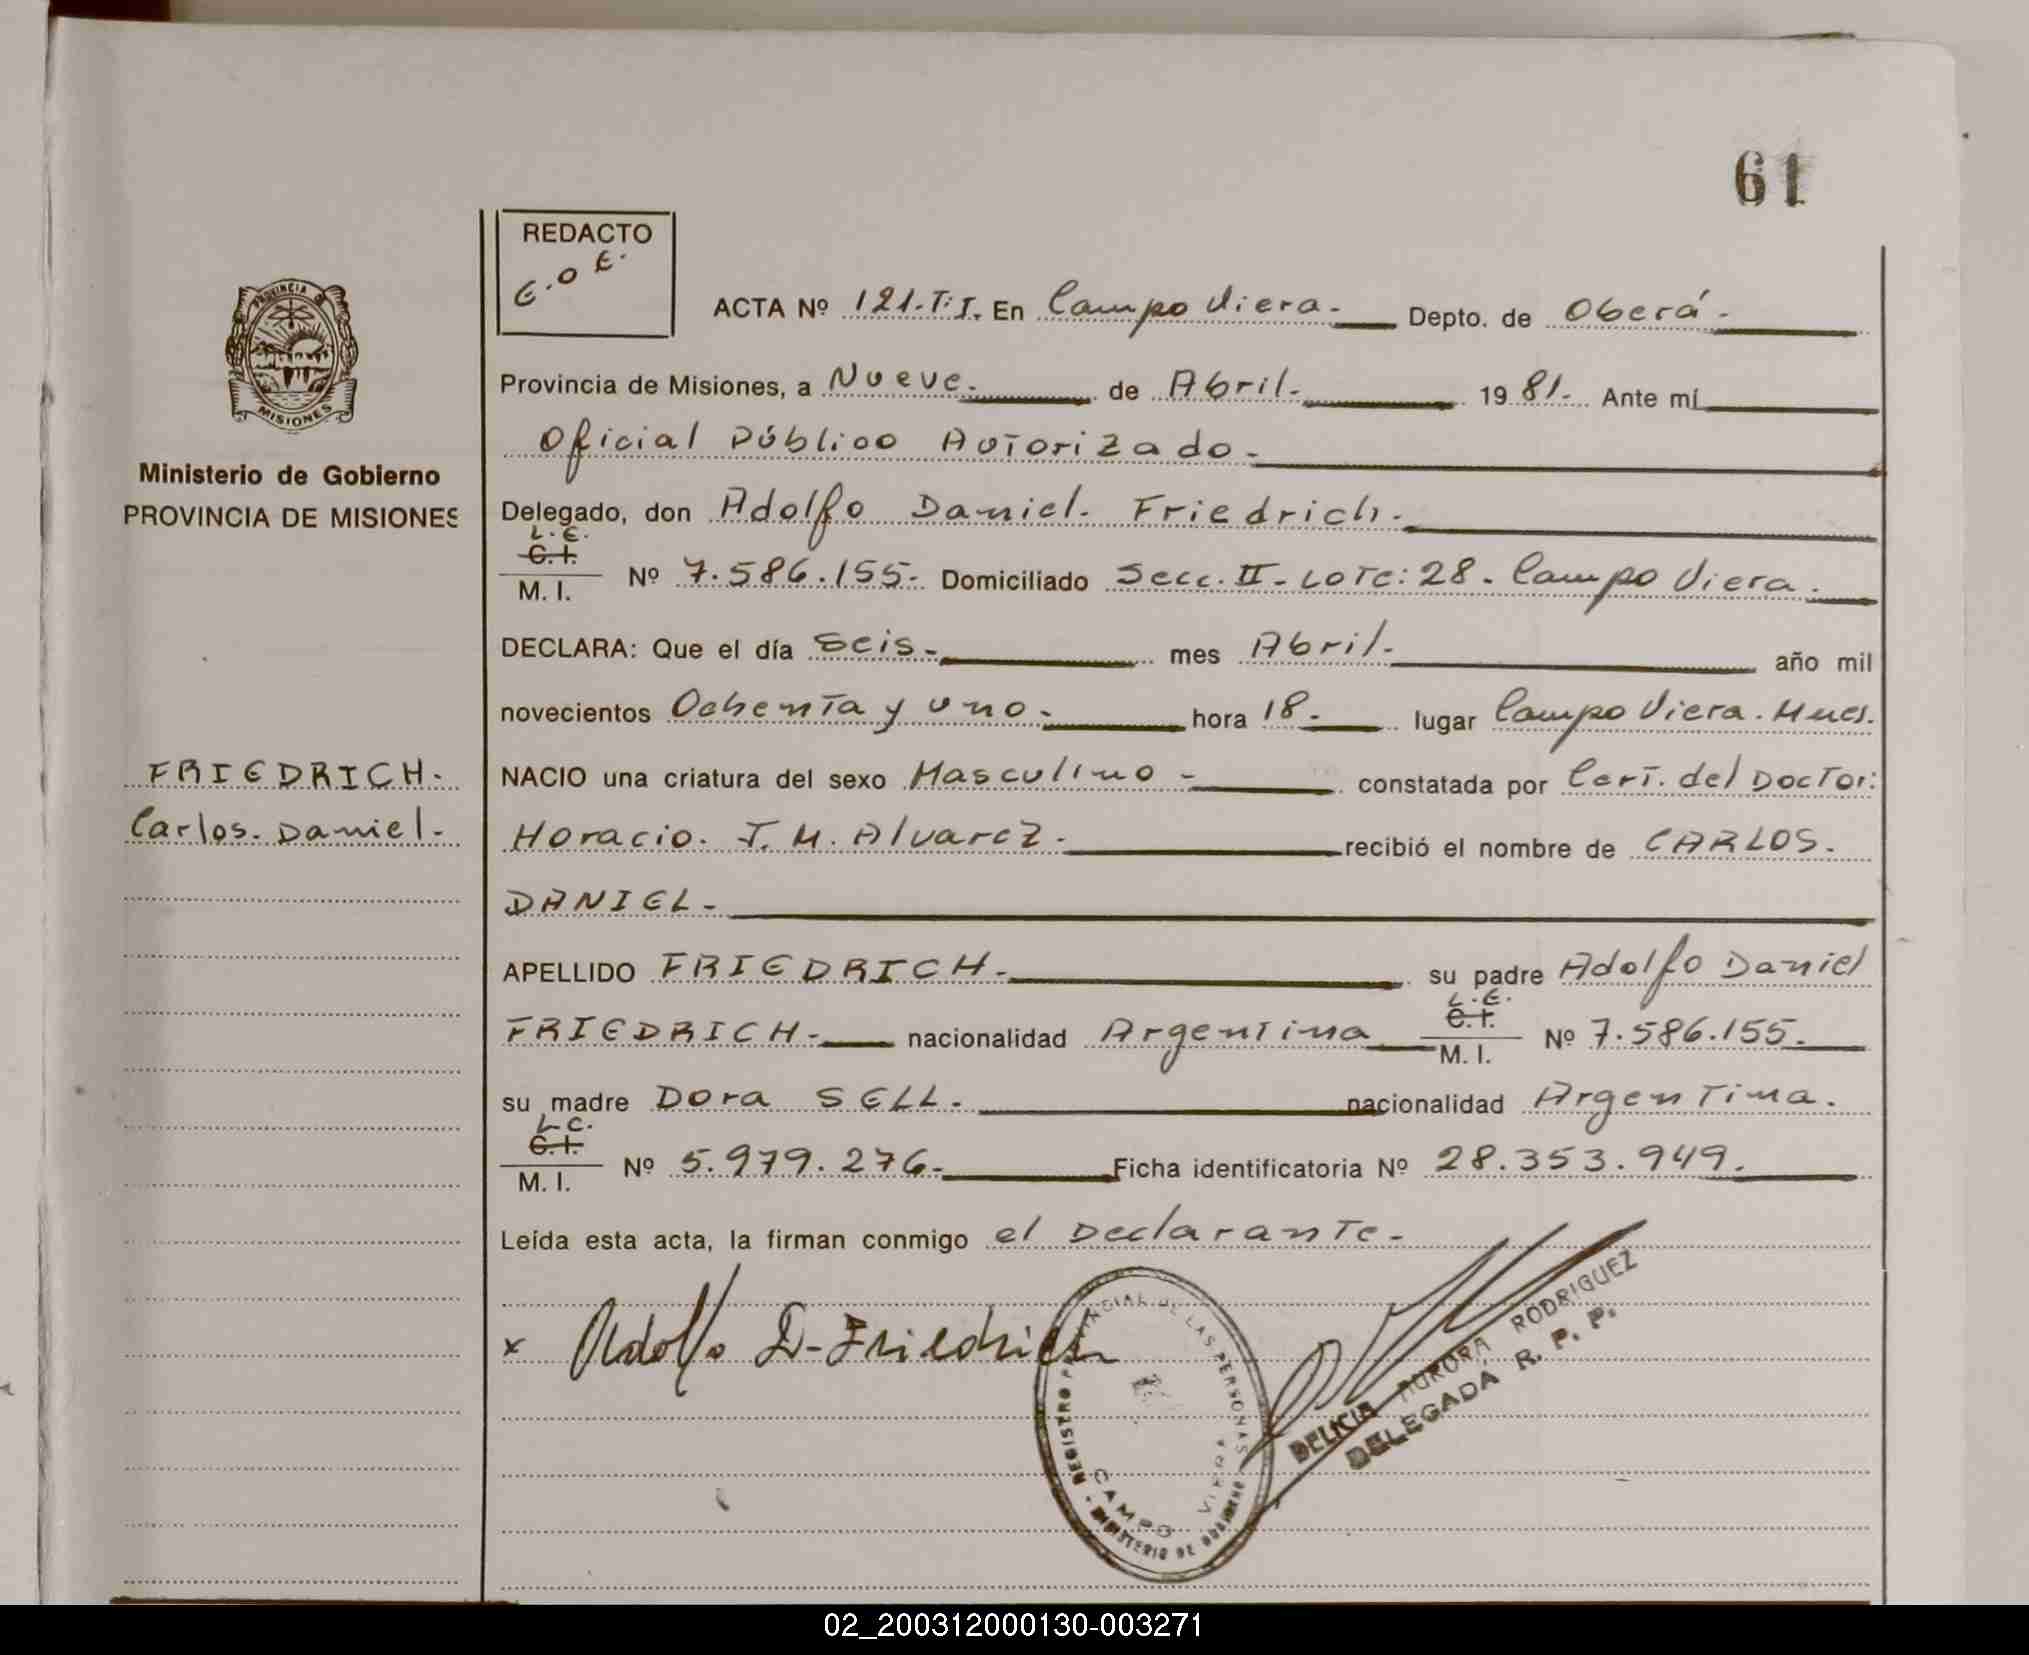 61
REDACTO
E.O E.
ACTA Nº 121.T.I. En Campo Viera.- Depto. de Oberá.-
Provincia de Misiones, a Nueve.- de Abril.- 1981.- Ante mí
Oficial Público Autorizado.-
Delegado, don Adolfo Daniel. Friedrich.-
L.E.
C.I.
M.I. Nº 7.586.155.- Domiciliado Secc. II - Lote: 28 - Campo Viera.
DECLARA: Que el día seis.- mes Abril.- año mil
novecientos Ochenta y uno.- hora 18.- lugar Campo Viera.
NACIO una criatura del sexo Masculino - constatada por Cert. del Doctor:
Horacio. J. M. Alvarez.- recibió el nombre de CARLOS.
DANIEL.-
APELLIDO FRIEDRICH.- su padre Adolfo Daniel
FRIEDRICH.- nacionalidad Argentina
L.E.
C.I.
M.I. Nº 7.586.155.
su madre Dora SELL.- nacionalidad Argentina.
L.C.
C.I.
M.I. Nº 5.979.276.- Ficha identificatoria Nº 28.353.949.
Leída esta acta, la firman conmigo el Declarante.-
x Adolfo D. Friedrich
REGISTRO PROVINCIAL DE LAS PERSONAS
CAMPO VIERA
MINISTERIO DE GOBIERNO
DELICIA AURORA RODRIGUEZ
DELEGADA R. P. P.
PROVINCIA DE
MISIONES
Ministerio de Gobierno
PROVINCIA DE MISIONES
FRIEDRICH.
Carlos. Daniel.
02_200312000130-003271